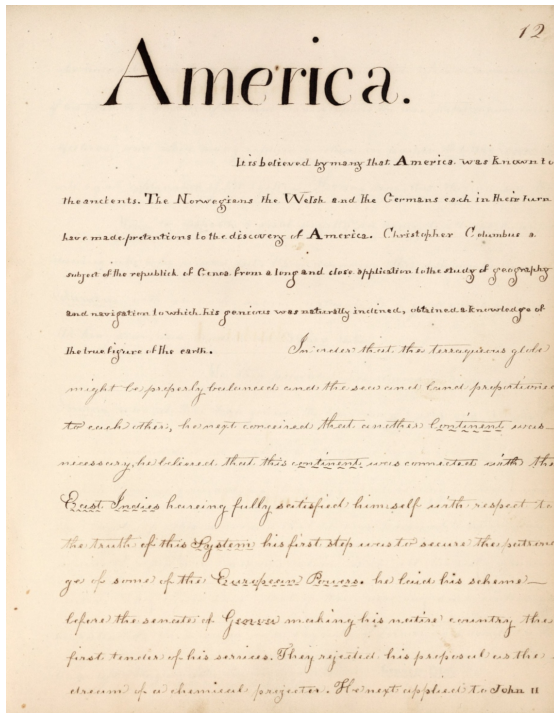 12
America.
It is believed by many that America was known to
the ancients. The Norwegians the Welsh and the Germans each in their turn
have made pretentions to the discovery of America. Christopher Columbus a
subject of the republick of Genoa from a long and close application to the study of geography
and navigation to which his genious was naturally inclined, obtained a knowledge of
the true figure of the earth. In order that the terraqueous globe
might be properly balanced and the sea and land proportioned
to each other, he next conceived that another Continent was
necessary, he believed that this continent was connected with the
East Indies haveing fully satisfied himself with respect to
the truth of this System his first step was to secure the patrona
ge of some of the European Powers. he laid his scheme
before the senate of Genoa making his native country the
first tender of his services. They rejected his proposal as the
dream of a chemical projector. He next applied to John II